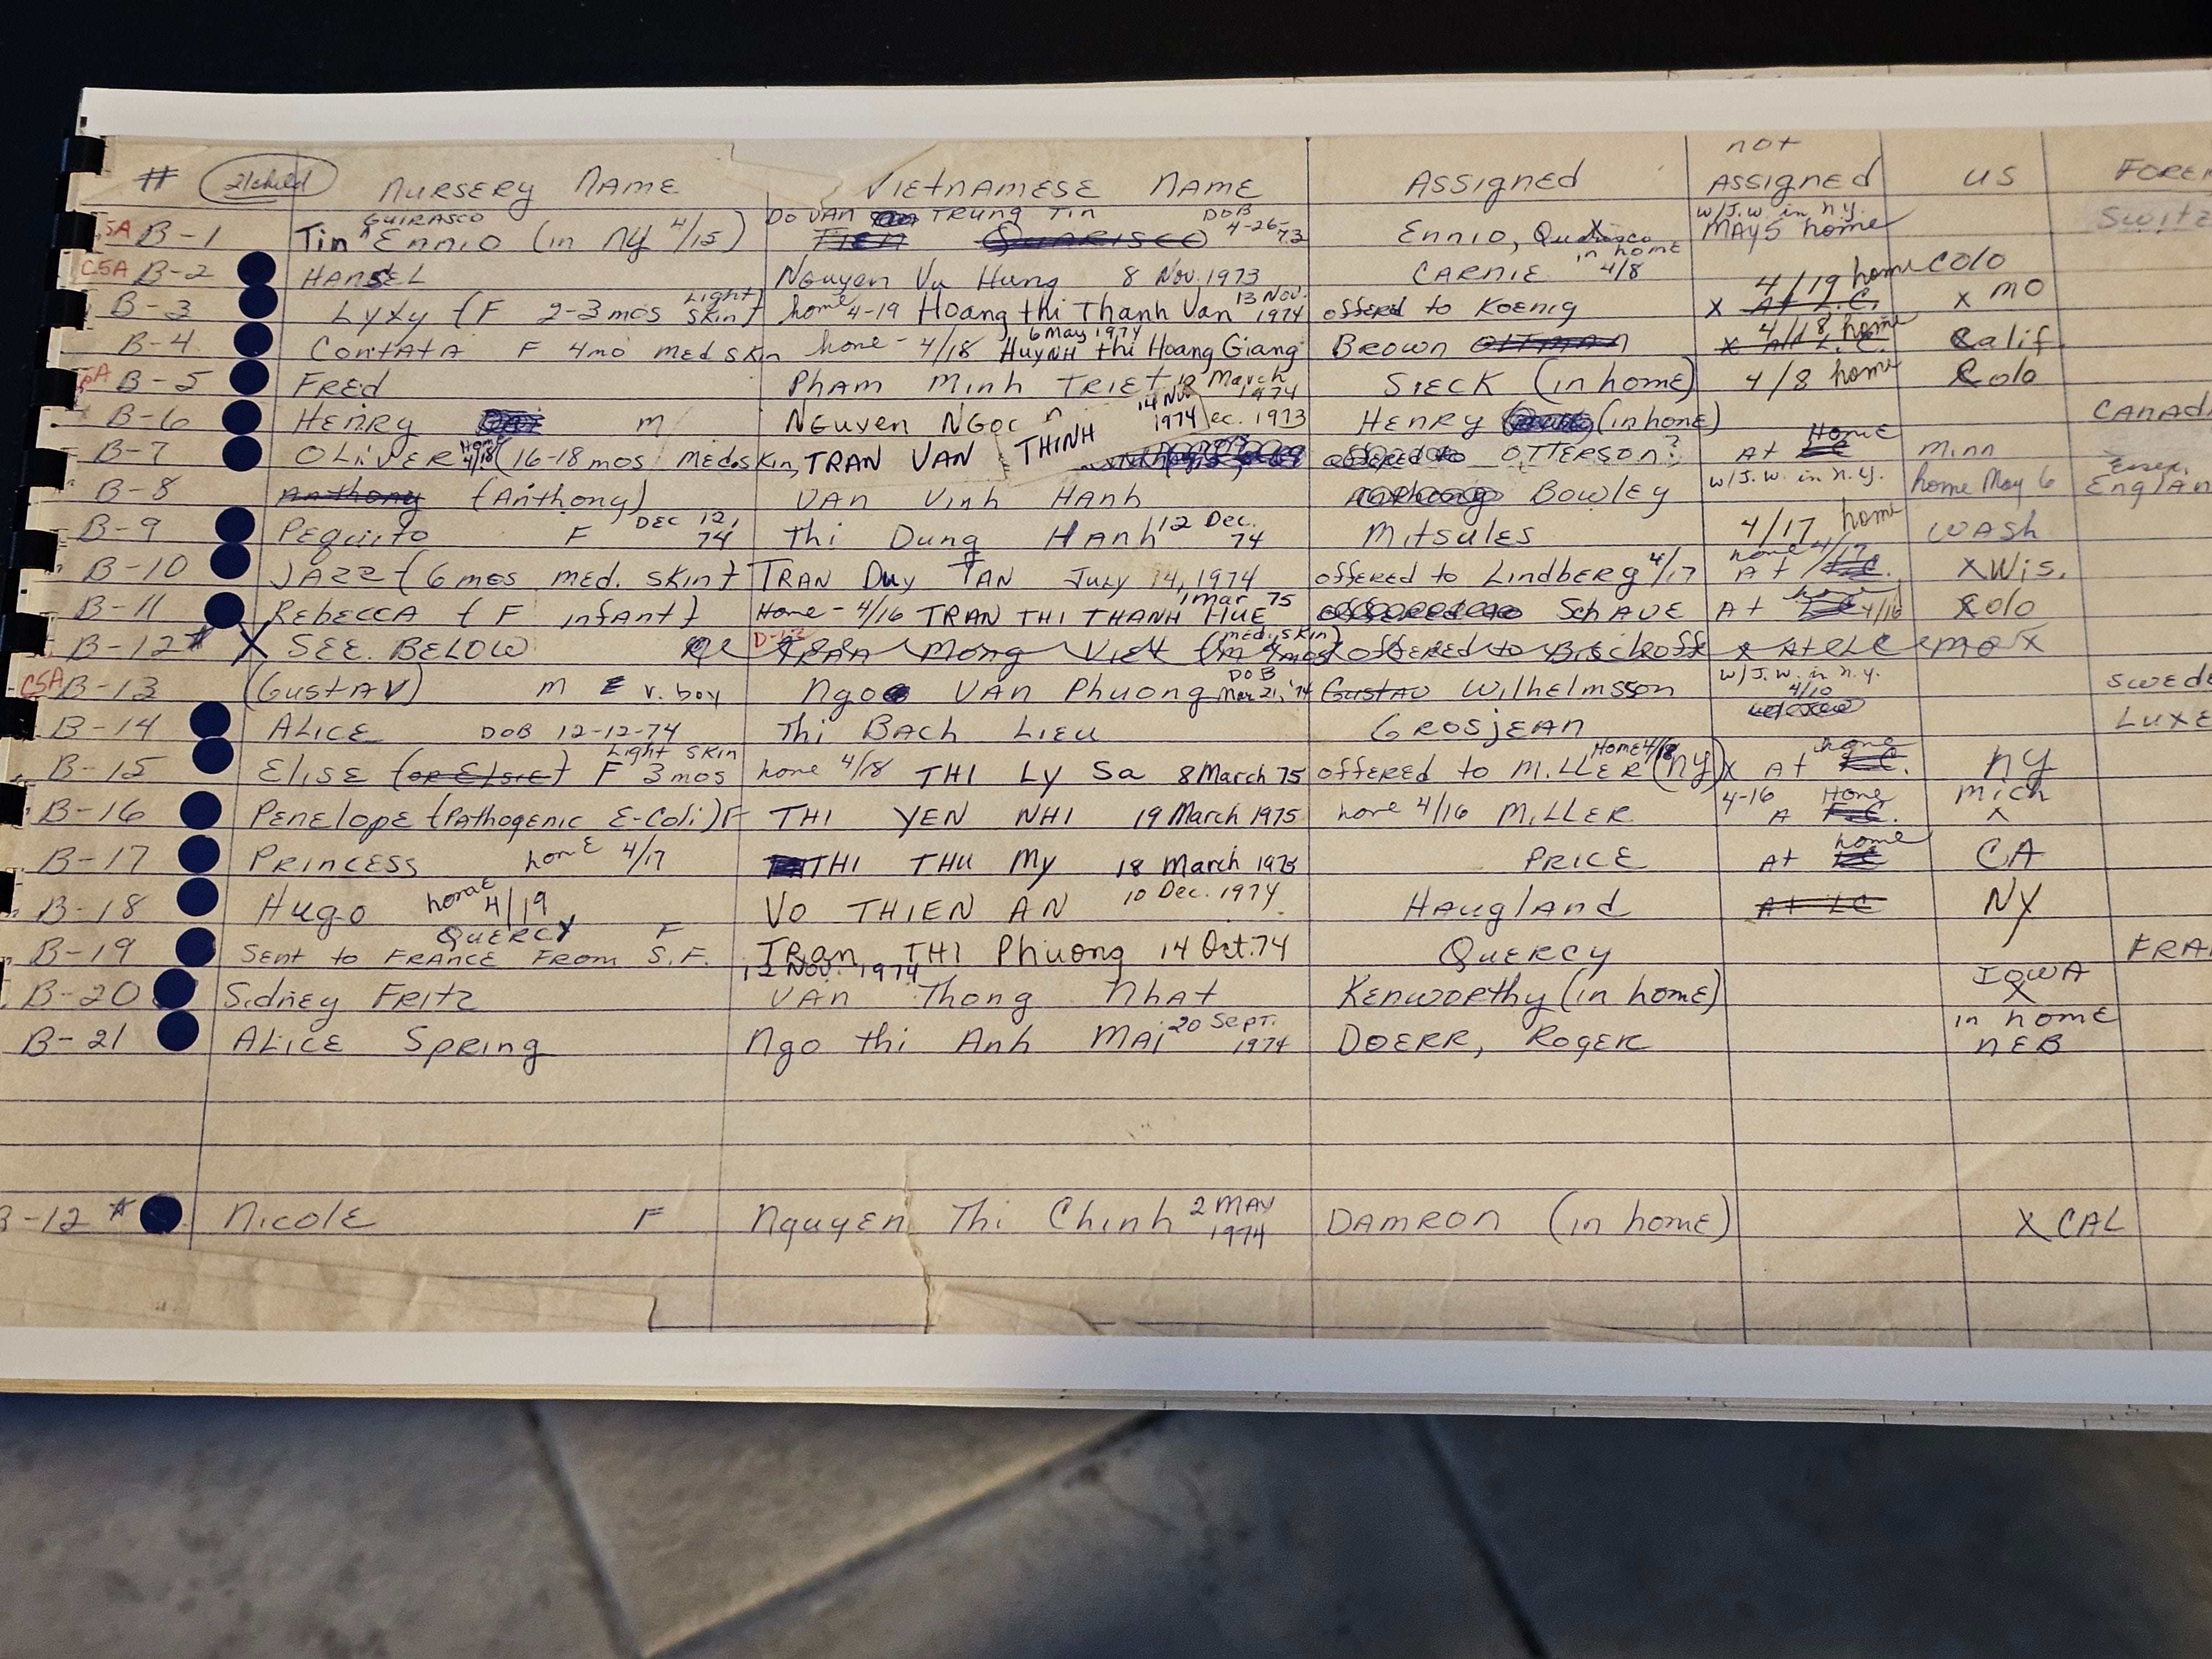 # 21 child NURSERY NAME VIETNAMESE NAME ASSIGNED not ASSIGNED US FOREI
SA B-1 Tin GUIRASCO ENNIO (in NY 4/15) DO VAN TRUNG TIN DOB 4-26-73 ENNIO, in home w/J.W. in n.y. MAY 5 home SWITZ
CSA B-2 HANSEL NGuyen Vu Hung 8 Nov. 1973 CARNIE 4/8 Colo
B-3 LyXy (F 2-3 mos Light skin) home 4-19 Hoang thi Thanh Van 13 Nov. 1974 offered to KOENIG X 4/19 home At L.C. X MO
B-4 CONTATA F 4mo med skin home - 4/18 HUYNH thi Hoang Giang 6 May 1974 BROWN OLTMAN X 4/18 home At L.C. Calif.
SA B-5 FRED PHAM MINH TRIET 18 March 1974 SIECK (in home) 4/8 home Colo
B-6 HENRY m NGuyen NGOC ec. 1973 HENRY (in home) CANAD
B-7 OLIVER Home 4/18 (16-18 mos med skin, TRAN VAN THINH 14 Nov 1974 OTTERSON? At HOME Minn
B-8 Anthony (Anthony) VAN Vinh HANH BOWLEY w/J.W. in n.y. home May 6 ENGLAN
B-9 PEQUITO F DEC 12, 74 Thi Dung HANH 12 Dec. 74 Mitsules 4/17 home WASH
B-10 JAZZ (6 mos med. skin) TRAN DUY TAN July 14, 1974 offered to LINDBERG 4/17 home 4/17 At X Wis.
B-11 REBECCA (F infant) Home - 4/16 TRAN THI THANH HUE 1 mar 75 SchAUE At home 4/16 Colo
B-12* X SEE BELOW TRAN Mong Viet (m 9 mos med. skin) offered to Bischoff X At LC mo X
CSA B-13 (GUSTAV) m v. boy Ngoc VAN Phuong DOB Mar 21, '74 Gustav Wilhelmsson w/J.W. in n.y. 4/10 SWEDE
B-14 ALICE DOB 12-12-74 Thi BACH LIEU GROSJEAN LUXE
B-15 ELISE (OR ELSIE) F 3 mos Light skin home 4/18 THI LY SA 8 March 75 offered to MILLER (NY) HOME 4/18 X At home NY
B-16 PENELOPE (Pathogenic E-Coli) F THI YEN NHI 19 March 1975 home 4/16 MILLER 4-16 A Home Mich X
B-17 PRINCESS home 4/17 THI THU MY 18 March 1975 PRICE At home CA
B-18 HUGO home 4/19 VO THIEN AN 10 Dec. 1974 HAUGLAND At LC NY
B-19 QUERCY F Sent to FRANCE FROM S.F. TRAN THI Phuong 14 Oct. 74 QUERCY FRA
B-20 Sidney Fritz 12 Nov. 1974 VAN Thong Nhat KENWORTHY (in home) IOWA X
B-21 ALICE SPRING Ngo thi Anh MAI 20 Sept. 1974 DOERR, ROGER in home NEB
B-12 * NICOLE F Nguyen Thi Chinh 2 MAY 1974 DAMRON (in home) X CAL